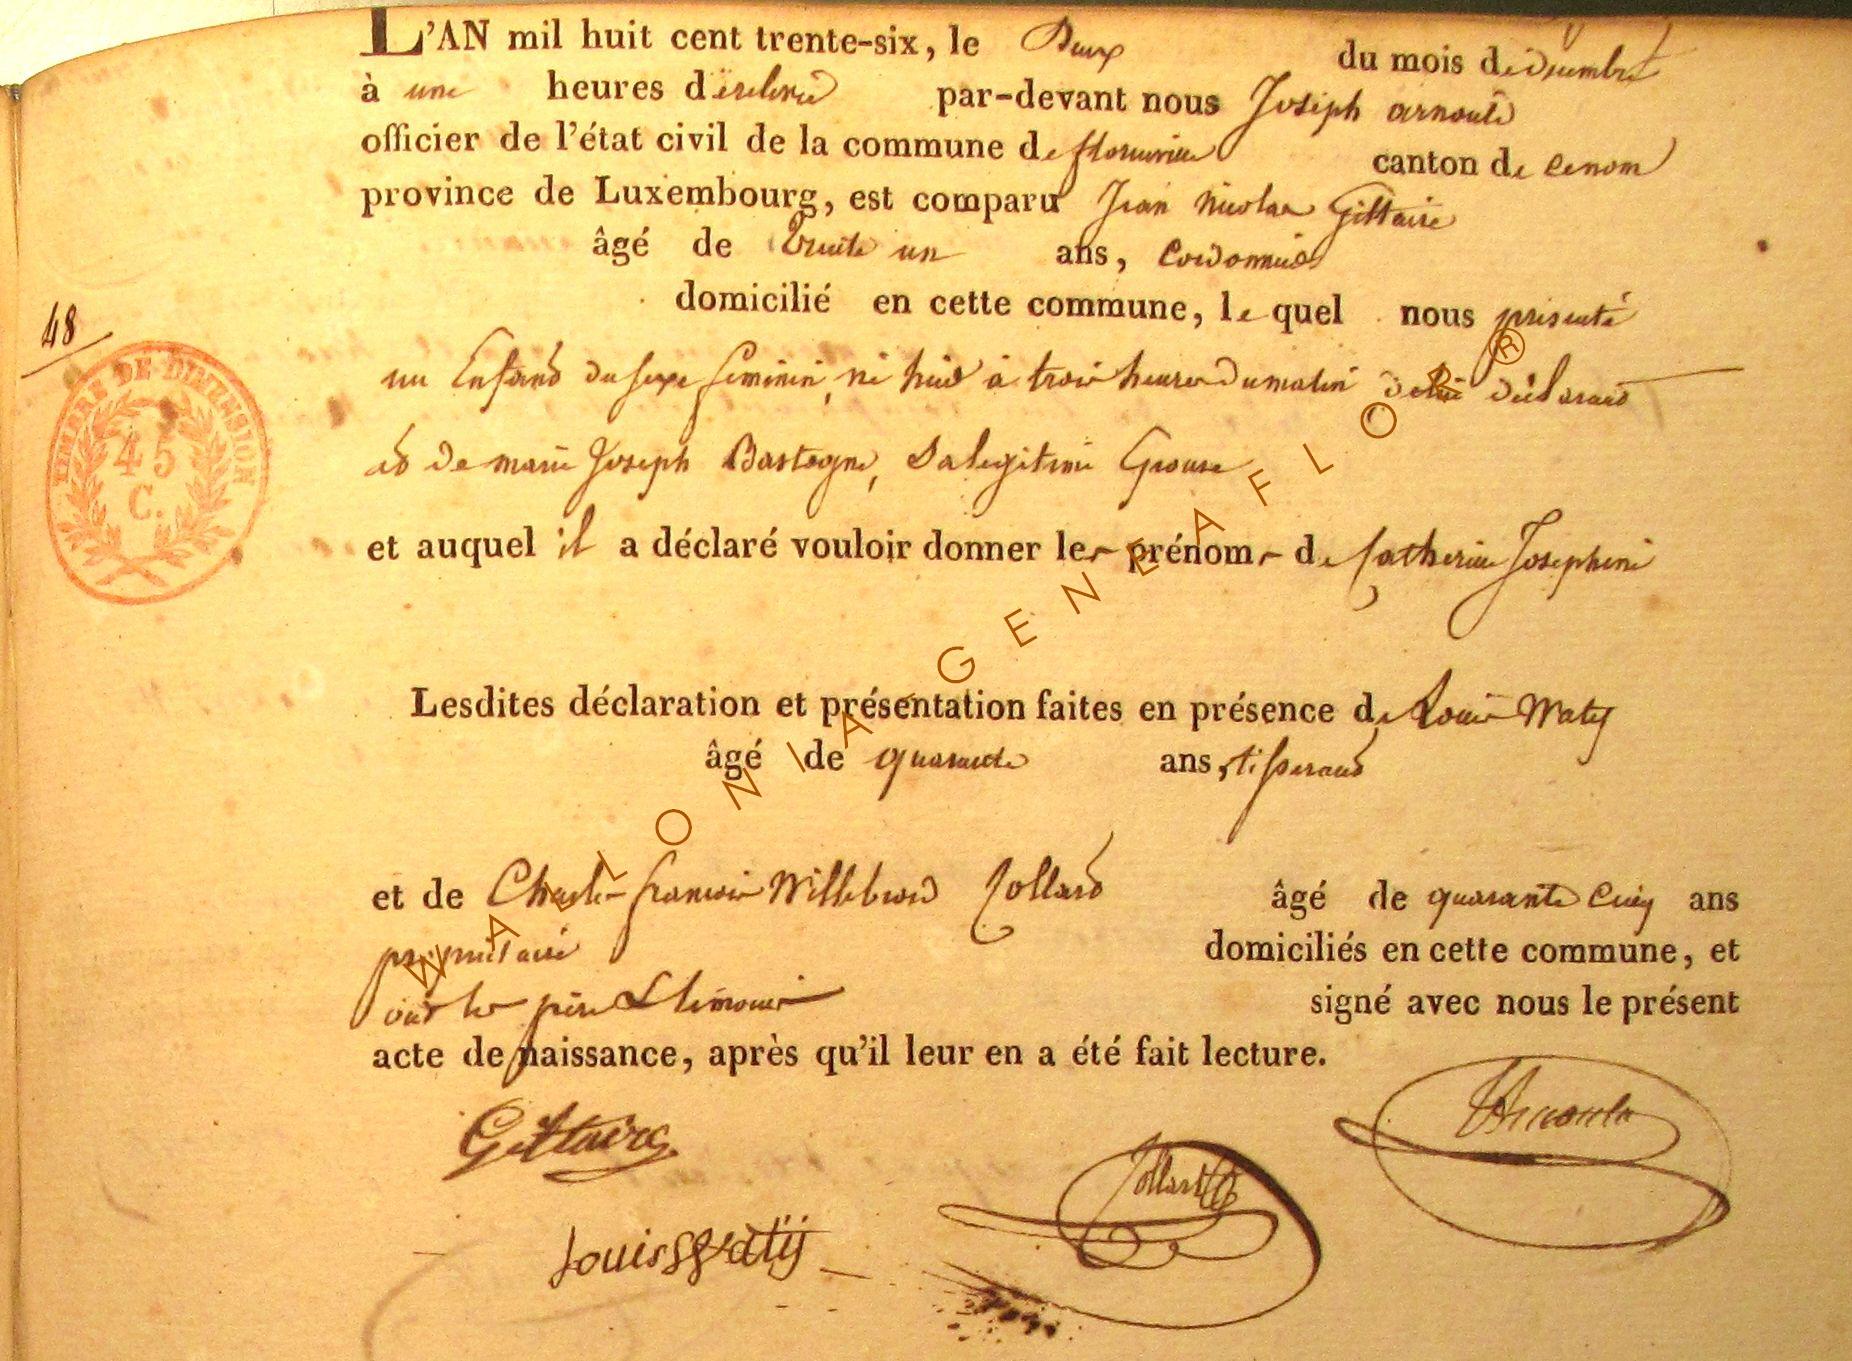 L'AN mil huit cent trente-six, le Deux du mois de décembre
à une heures de relevée par-devant nous Joseph arnould
officier de l'état civil de la commune de florenville canton de
province de Luxembourg, est comparu Jean Nicolas Gittaire
âgé de trente un ans, Cordonnier
domicilié en cette commune, le quel nous présenté
48
un Enfand du sexe feminin, né hier à trois heures du matin de lui déclarant
et de marie Joseph Bastogne, Sa legitime Epouse
et auquel il a déclaré vouloir donner les prénoms de Catherine Josephine
TIMBRE DE DIMENSION
45
C.
Lesdites déclaration et présentation faites en présence de Louis Waty
âgé de quarante ans, tisserand
et de Charles françois Willebrord Collard âgé de quarante Cinq ans
propriétaire domiciliés en cette commune, et
ont les père & temoins signé avec nous le présent
acte de naissance, après qu'il leur en a été fait lecture.
Gittaire
Collard
Louis Watij
WALLONIA GENEAFLOR ®